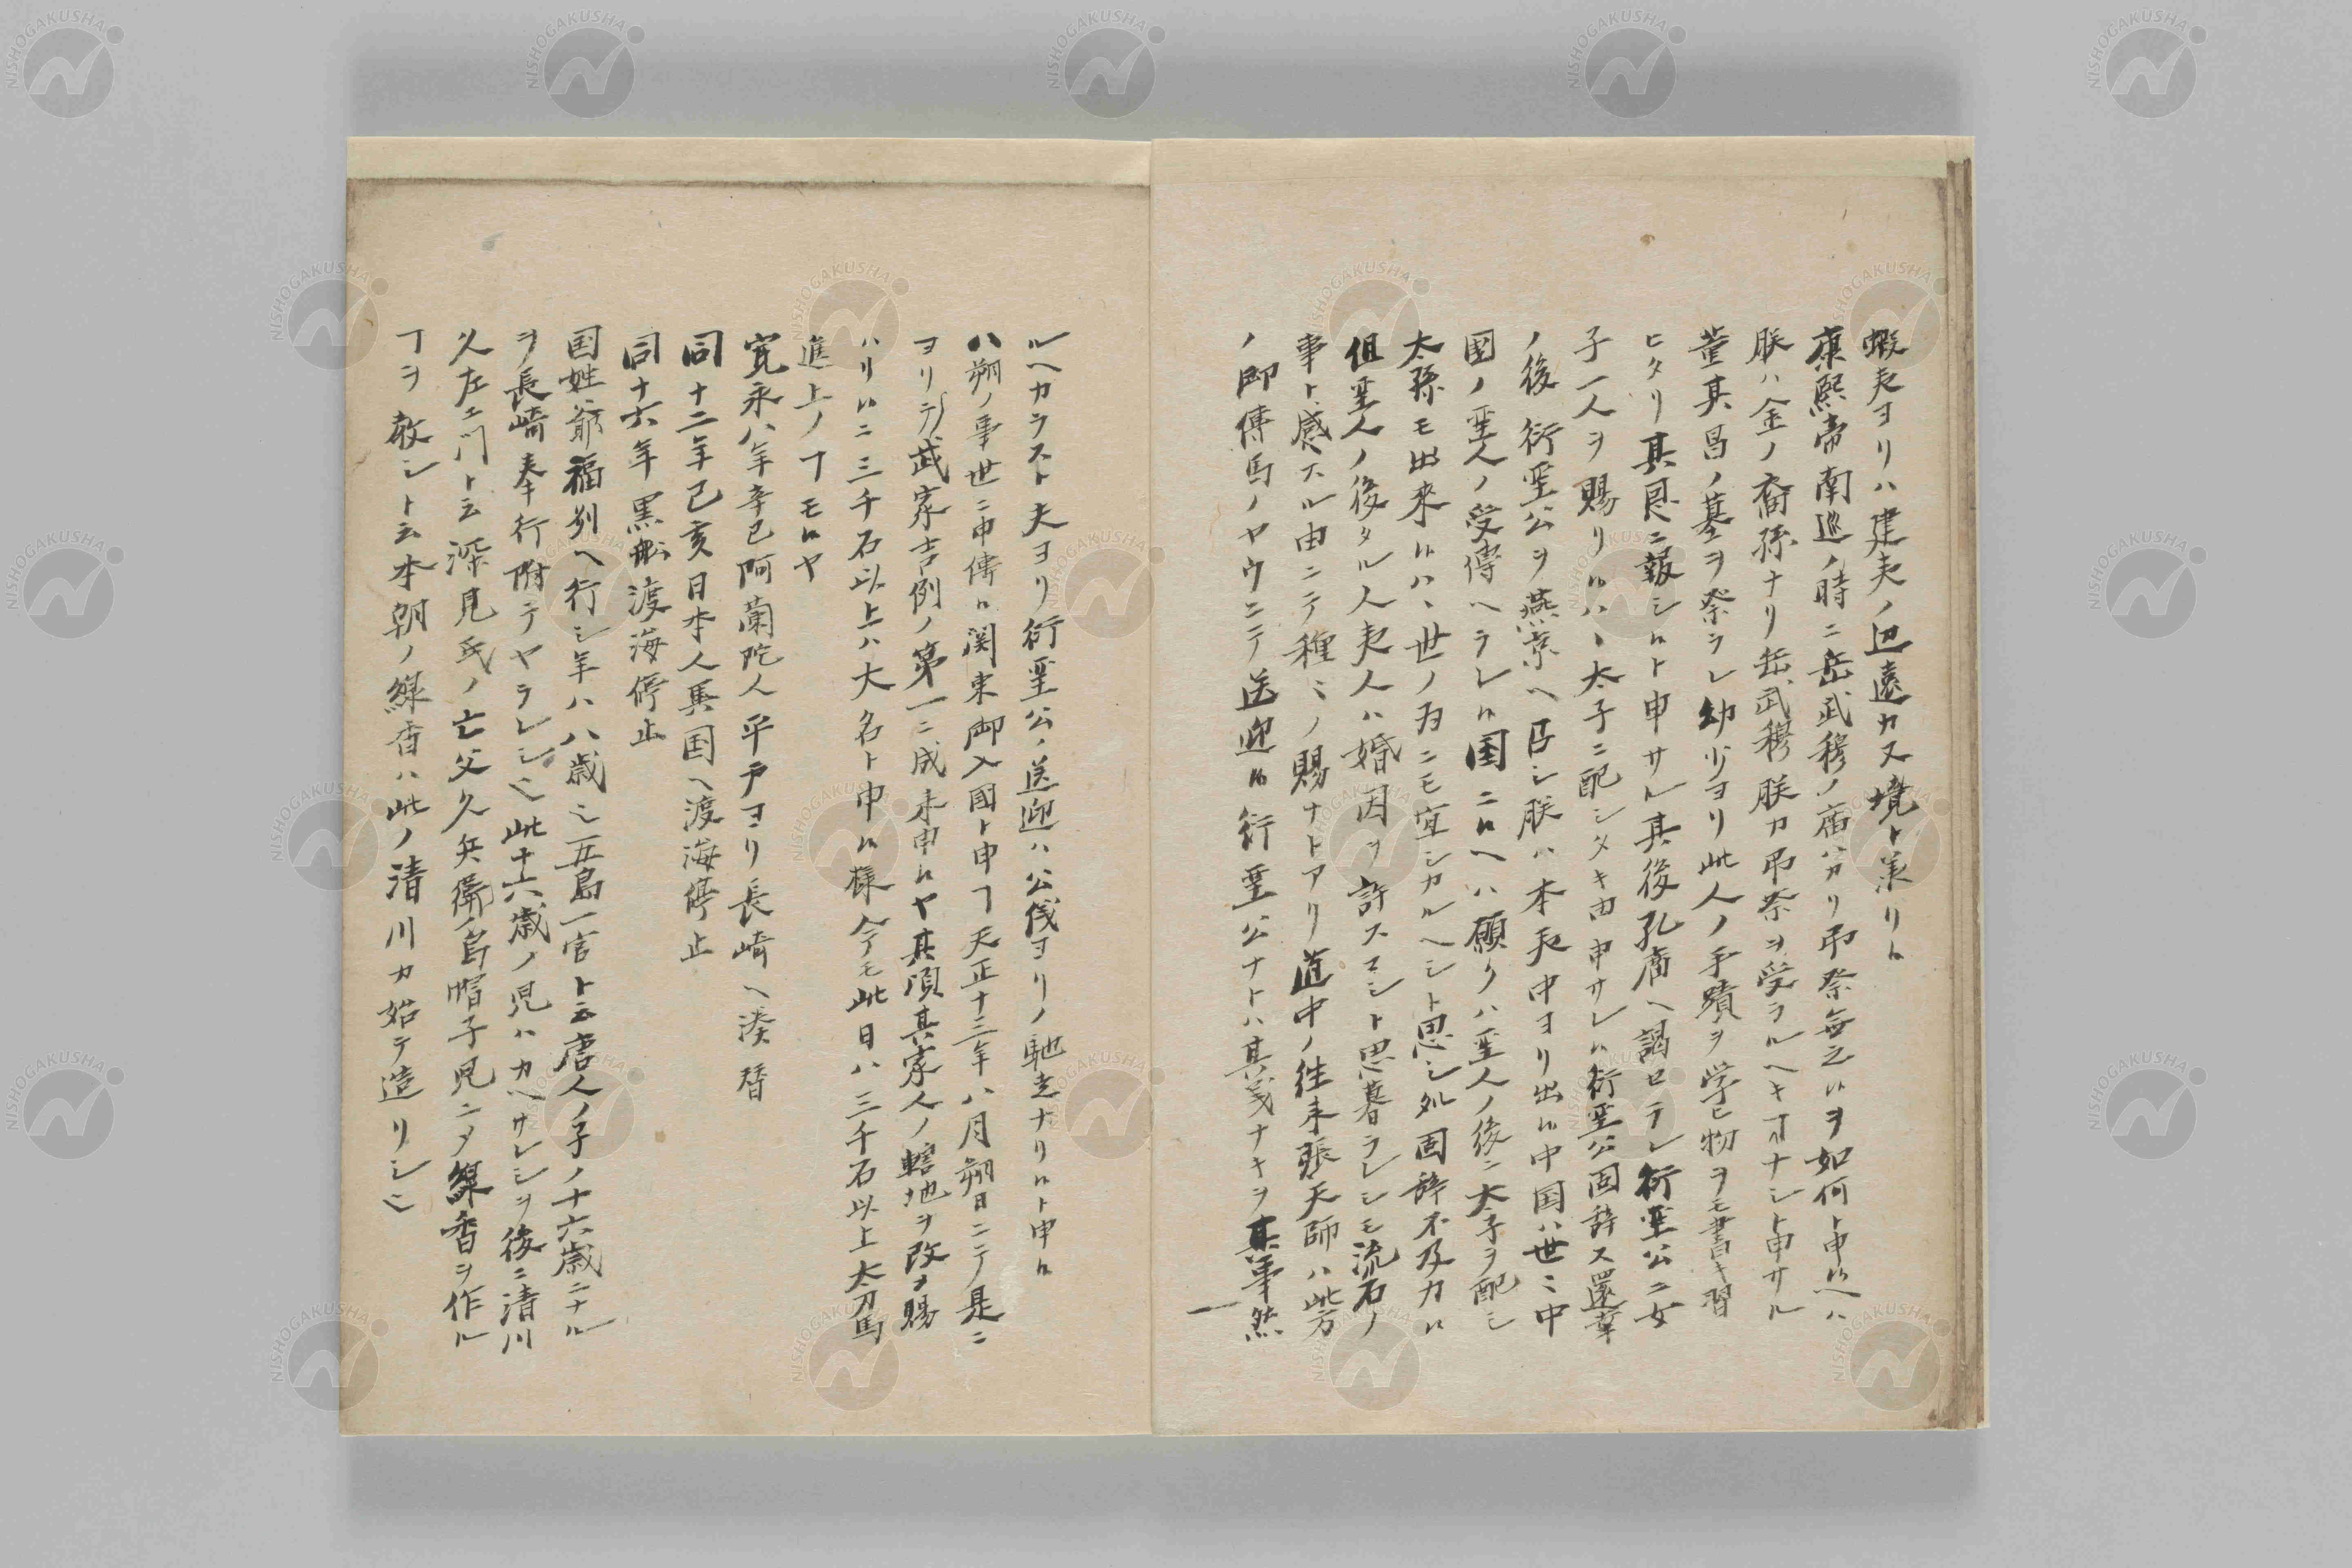 蝦夷ヨリハ建夷ノ辺遠カヌ境ト承リ候
康熙帝南巡ノ時ニ岳武穆ノ庙ハカリ吊祭無之候ヲ如何ト申候ヘハ
朕ハ金ノ裔孫ナリ岳武穆朕カ吊祭ヲ受ラルヘキヿナシト申サル
董其昌ノ墓ヲ祭ラレ幼少ヨリ此人ノ手蹟ヲ学ヒ物ヲモ書キ習
ヒタリ其恩ニ報シ候ト申サル其後孔庙ヘ謁セラレ衍聖公ニ女
子一人ヲ賜リ候ハ丶太子ニ配シタキ由申サレ候衍聖公固辞ス還幸
ノ後衍聖公ヲ燕京ヘ召シ朕ハ本夷中ヨリ出候中国ハ世ミ中
國ノ聖人ノ受傳ヘラレ候国ニ候ヘハ願クハ聖人ノ後ニ太子ヲ配シ
太孫モ出来候ハ丶世ノ為ニモ宜シカルヘシト思シ処固辞不及力候
但聖人ノ後タル人夷人ハ婚因ヲ許スマシト思暮ラレシモ流石ノ
事ト感スル由ニテ種ミノ賜ナトアリ道中ノ往来張天師ハ此方
ノ御傳馬ノヤウニテ送迎候衍聖公ナトハ其義ナキヲ其事然
ルヘカラスト夫ヨリ衍聖公ノ送迎ハ公儀ヨリノ馳走ナリ候ト申候
八朔ノ事世ニ申傳候関東御入國ト申ヿ天正十三年八月朔日ニテ是ニ
ヨリテ武家吉例ノ第一ニ成来申候ヤ其頃其家人ノ轄地ヲ改ヲ賜
ハリ候ニ三千石以上ハ大名ト申候様今モ此日ハ三千石以上太刀馬
進上ノヿモ候ヤ
寛永八年辛巳阿蘭陀人平戸ヨリ長崎ヘ湊替
同十二年己亥日本人異国ヘ渡海停止
同十六年黒舩渡海停止
国姓爺福州ヘ行シ年ハ八歳也五島一官ト云唐人ノ子ノ十六歳ニナル
ヲ長崎奉行附テヤラレシ也此十六歳ノ児ハカヘサレシヲ後ニ清川
久左エ門ト云深見氏ノ亡父久兵衛ノ烏帽子児ニテ線香ヲ作ル
ヿヲ教シト云本朝ノ線香ハ此ノ清川カ始テ造リシ也